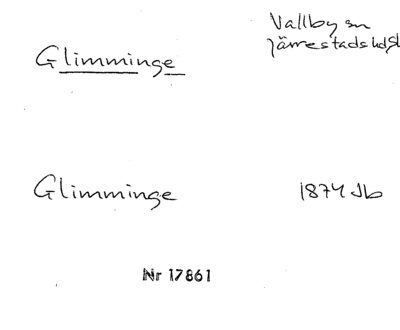 Vallby sn
Järrestads hd
Glimminge
Glimminge 1874 Jb
Nr 17861